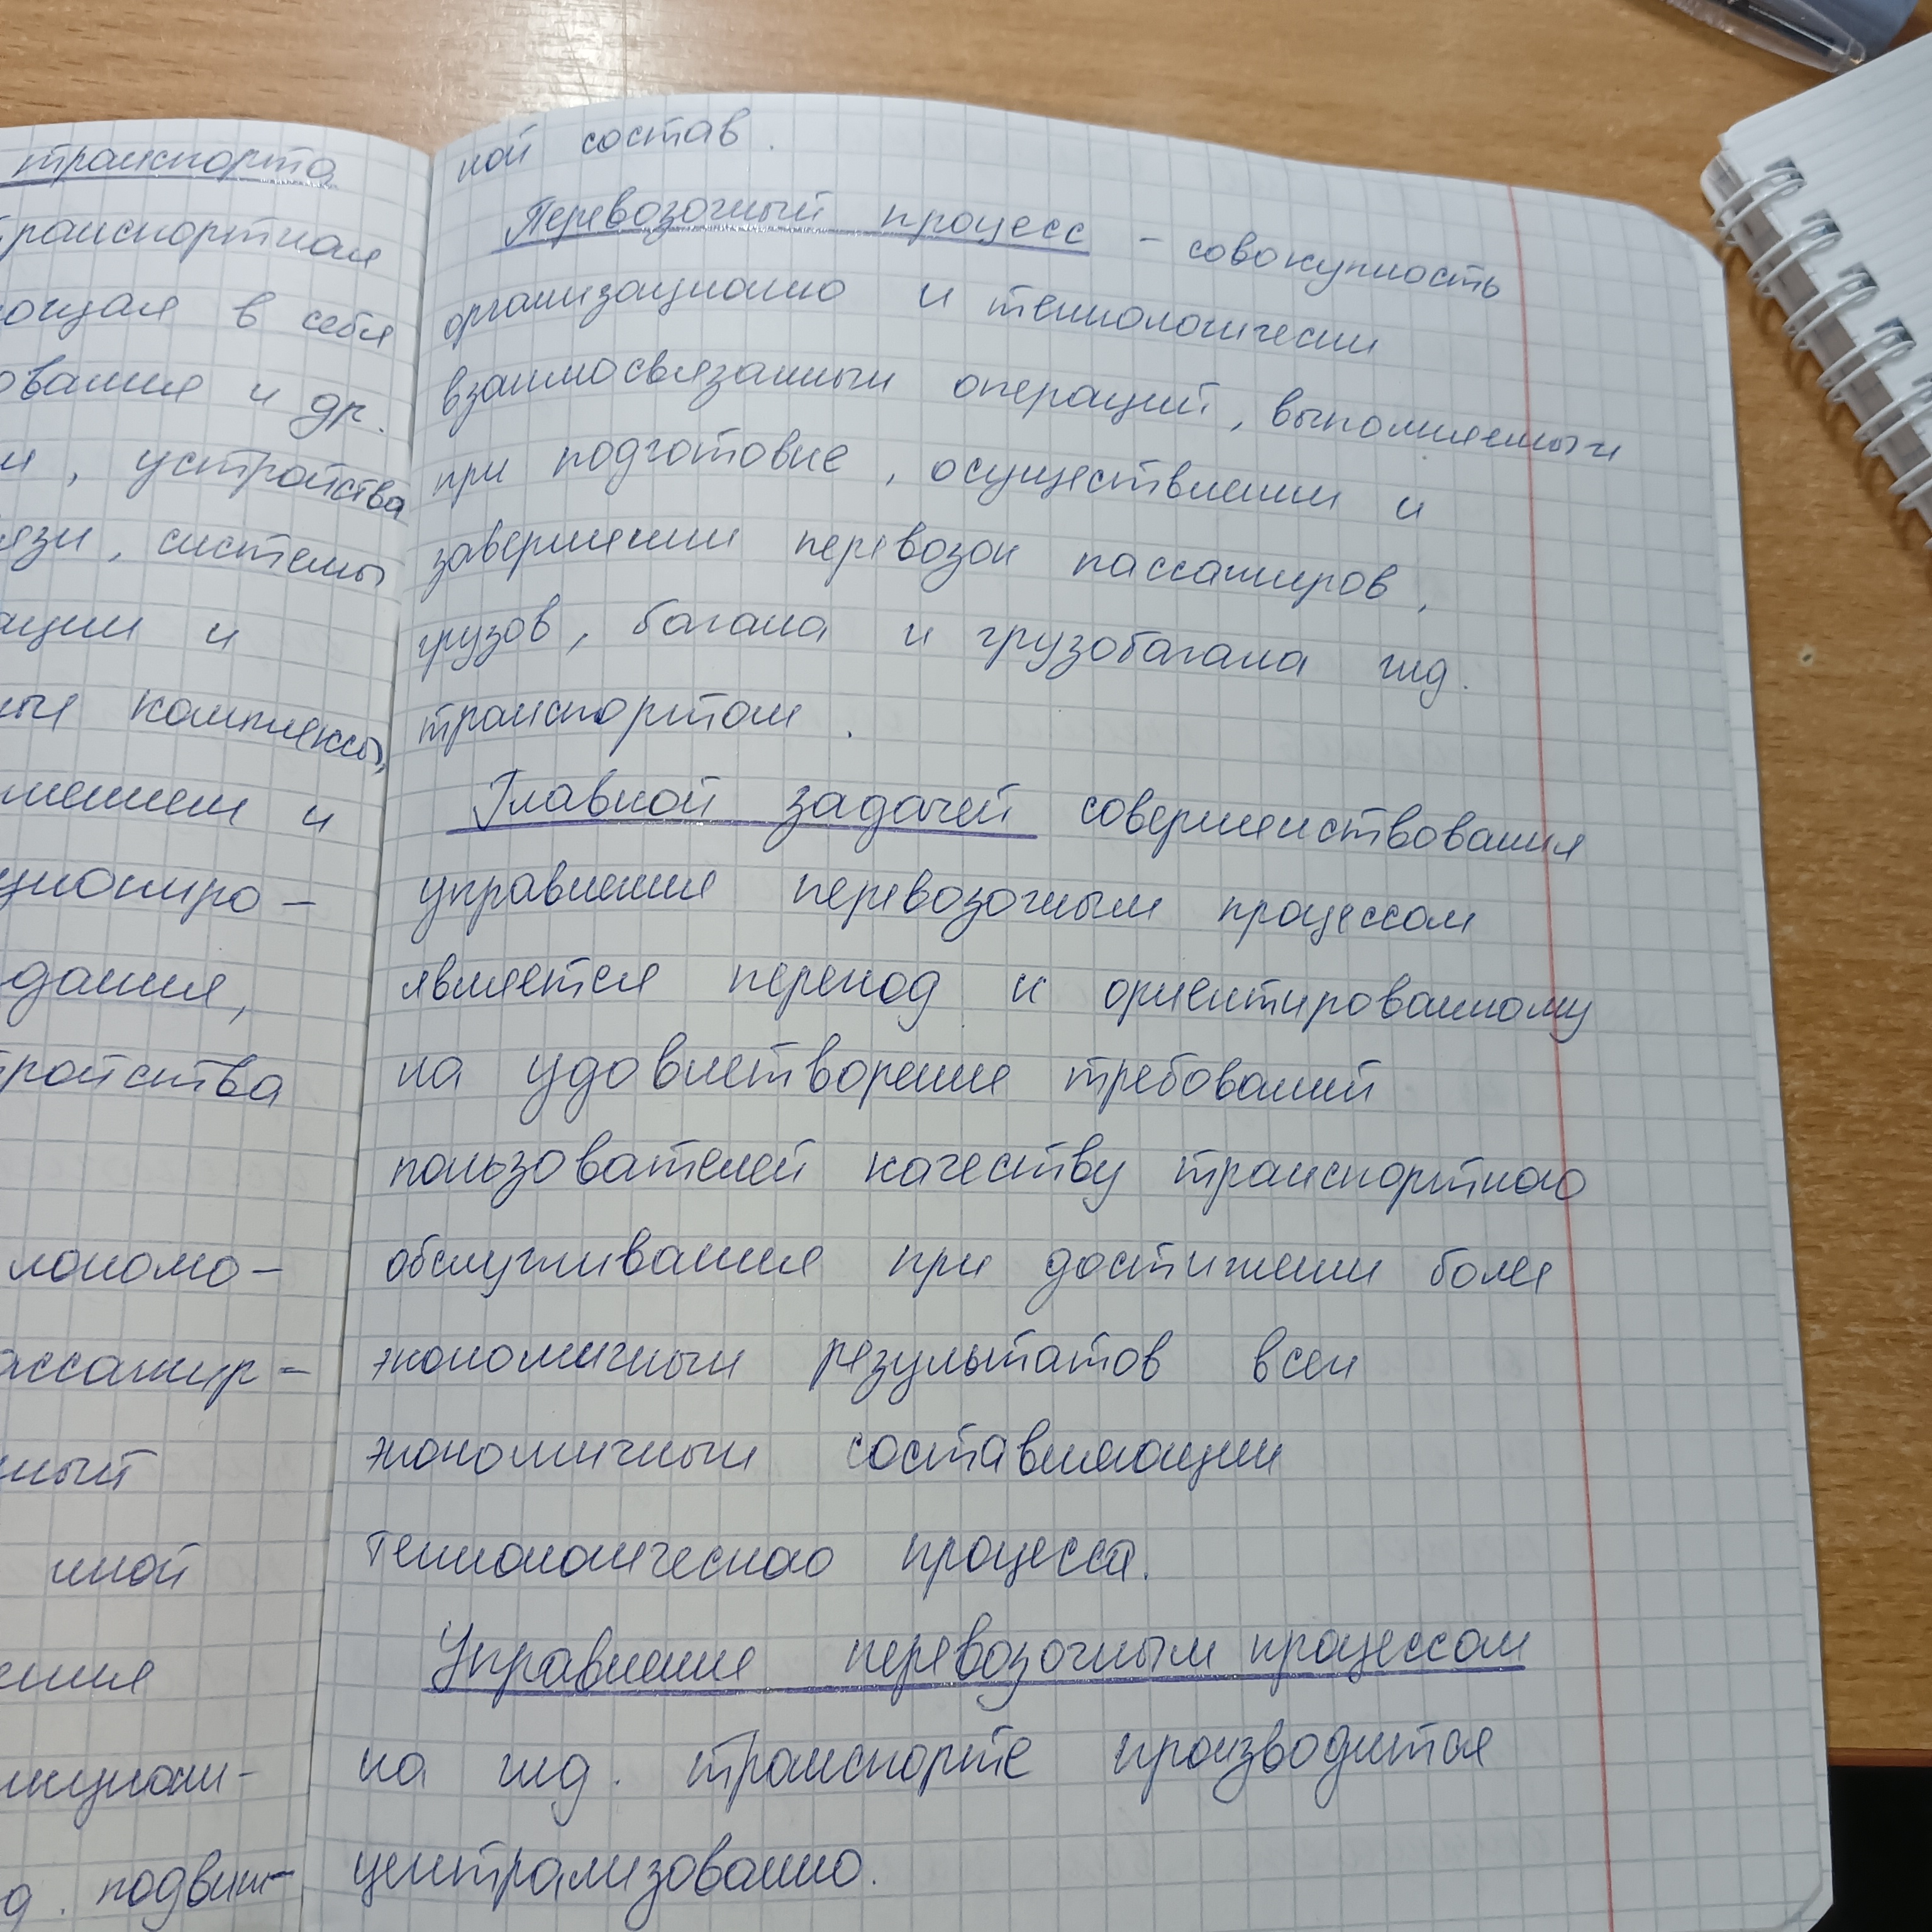 транспорта
транспортная
ющая в себя
ования и др.
и, устройства
язи, системы
ации и
ные комплексы,
лением и
циониро-
дания,
тройства
локомо-
ассажир-
ный
иной
ения
нкциони-
д. подвиж-
ной состав.
Перевозочный процесс - совокупность
организационно и технологически
взаимосвязанных операций, выполняемых
при подготовке, осуществлении и
завершении перевозок пассажиров,
грузов, багажа и грузобагажа жд.
транспортом.
Главной задачей совершенствования
управления перевозочным процессом
является переход к ориентированному
на удовлетворение требований
пользователей качеству транспортного
обслуживания при достижении более
экономичных результатов всех
экономичных составляющих
технологического процесса.
Управление перевозочным процессом
на жд. транспорте производится
централизованно.